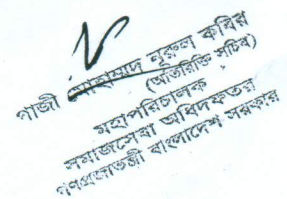 গাজী মোহাম্মদ নূরুল কবির
(অতিরিক্ত সচিব)
মহাপরিচালক
সমাজসেবা অধিদফতর
গণপ্রজাতন্ত্রী বাংলাদেশ সরকার